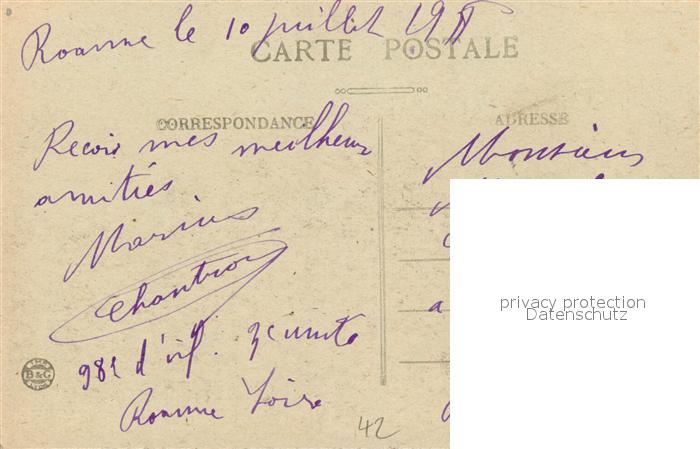 Roanne le 10 juillet 19
CARTE POSTALE
CORRESPONDANCE
ADRESSE
Recois mes meilheurs
amitiés
Marius
98e d'inf.
Roanne Loire
B&G
42
Monsieur
a
privacy protection
Datenschutz